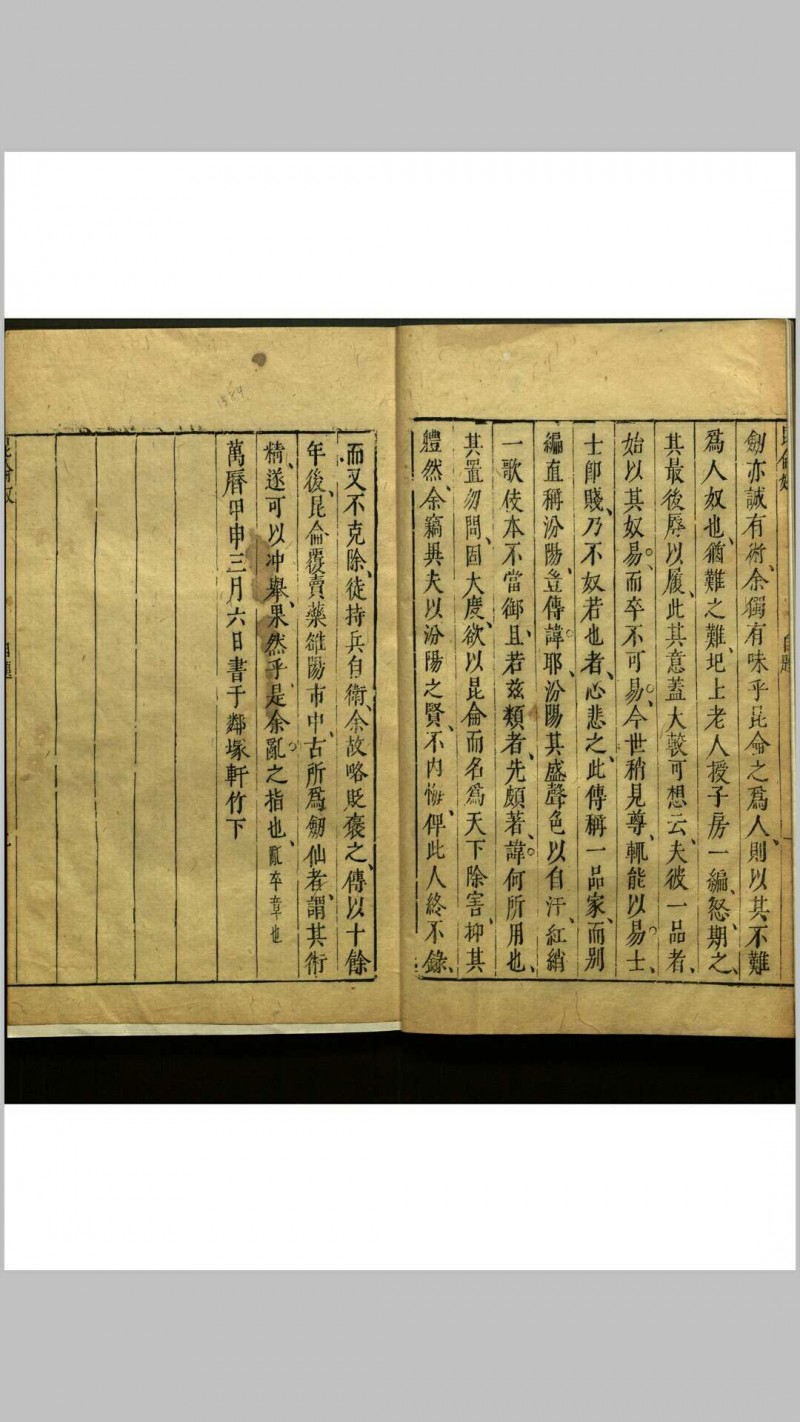 劒亦誠有術、余獨有味乎昆侖之爲人、則以其不難
爲人奴也、猶難之難、圯上老人授子房一編、怒期之、
其最後辱以履、此其意蓋大較可想云、夫彼一品者、
始以其奴易。而卒不可易。今世稍見尊、輒能以易士、
士卽賤、乃不奴若也者、心悲之、此傳稱一品家、而别
編直稱汾陽、豈傳諱耶、汾陽其盛聲色以自汙、紅綃
一歌伎本不當御、且若兹類者、先頗著、諱何所用也、
其置勿問、固大度、欲以昆侖而名爲天下除害、抑其
軆然、余竊異夫以汾陽之賢、不内悔、俾此人終不錄、
而又不克除、徒持兵自衛、余故略貶褒之、傳以十餘
年後、昆侖覆賣藥雒陽市中、古所爲劒仙者、謂其術
精、遂可以冲舉、果然乎、是余亂之指也、亂卒章也
萬曆甲申三月六日書于鄰塚軒竹下
昆侖奴
自題
一